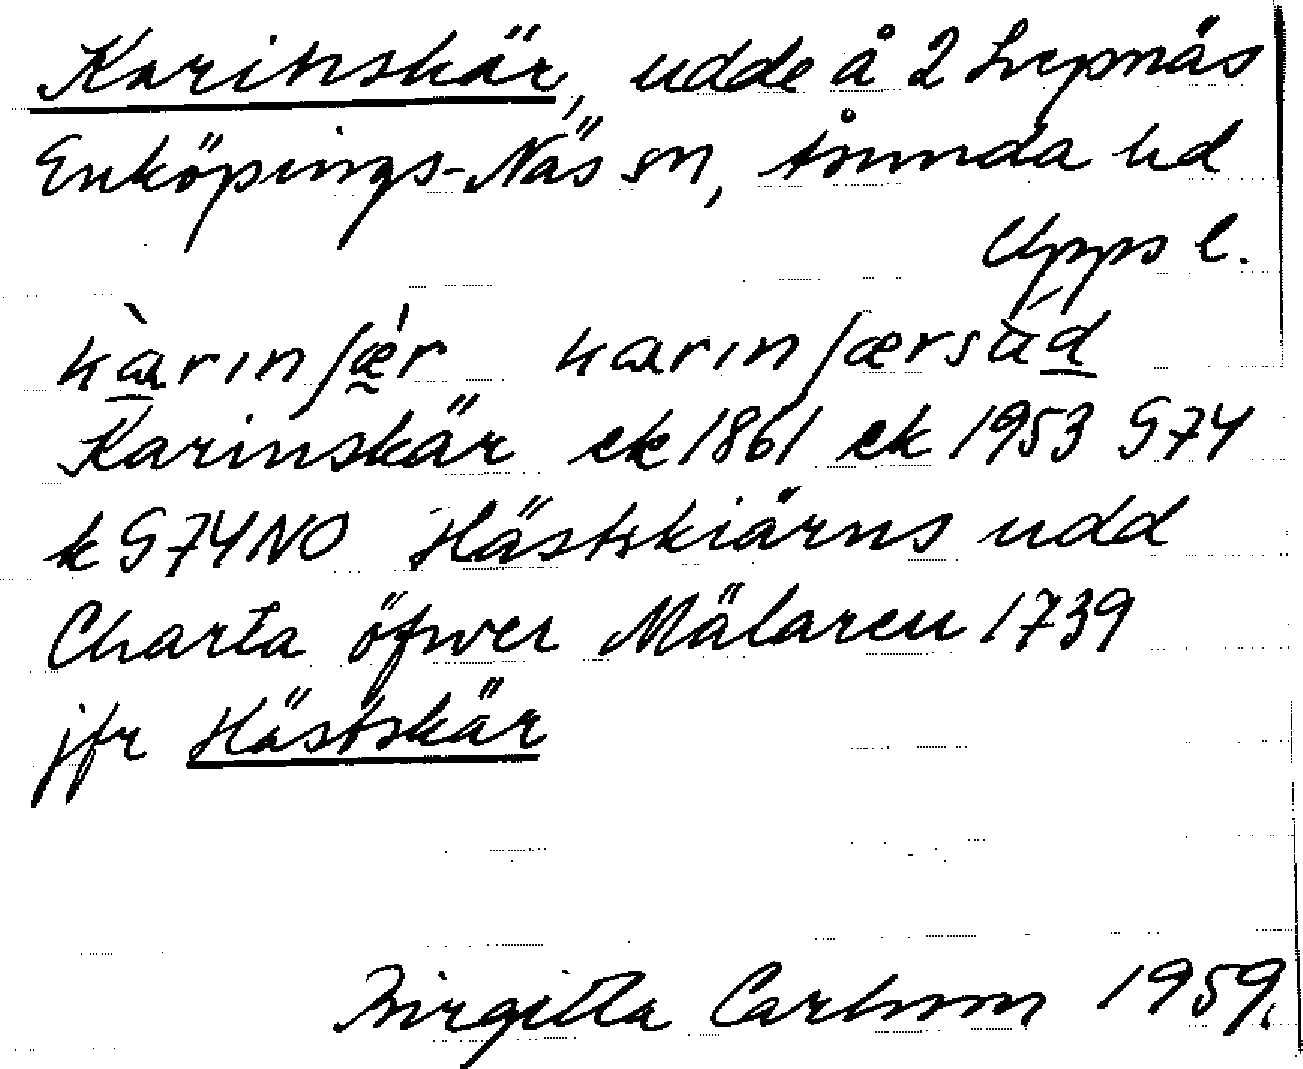 Karinskär, udde å 2 Svepnäs
Enköpings-Näs sn, Åsunda hd
Upps l.
kàrinʃæ̀r karinʃærsùd
Karinskär ek 1861 ek 1953 G74
k G74NO Hästskiärns udd
Charta öfwer Mälaren 1739
jfr Hästskär
Birgitta Carlsson 1959.